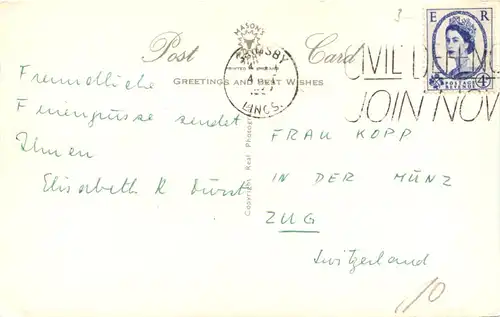 MASON'S
Post Card
GREETINGS AND BEST WISHES
GRIMSBY
LINCS.
CIVIL DEFENCE
JOIN NOW
E R
POSTAGE REVENUE
4D
3-
Freundliche
Feriengrüsse sendet
Ihnen
Elisabeth K Dürst
FRAU KOPP
IN DER MÜNZ
ZUG
Switzerland
Copyright Real Photograph